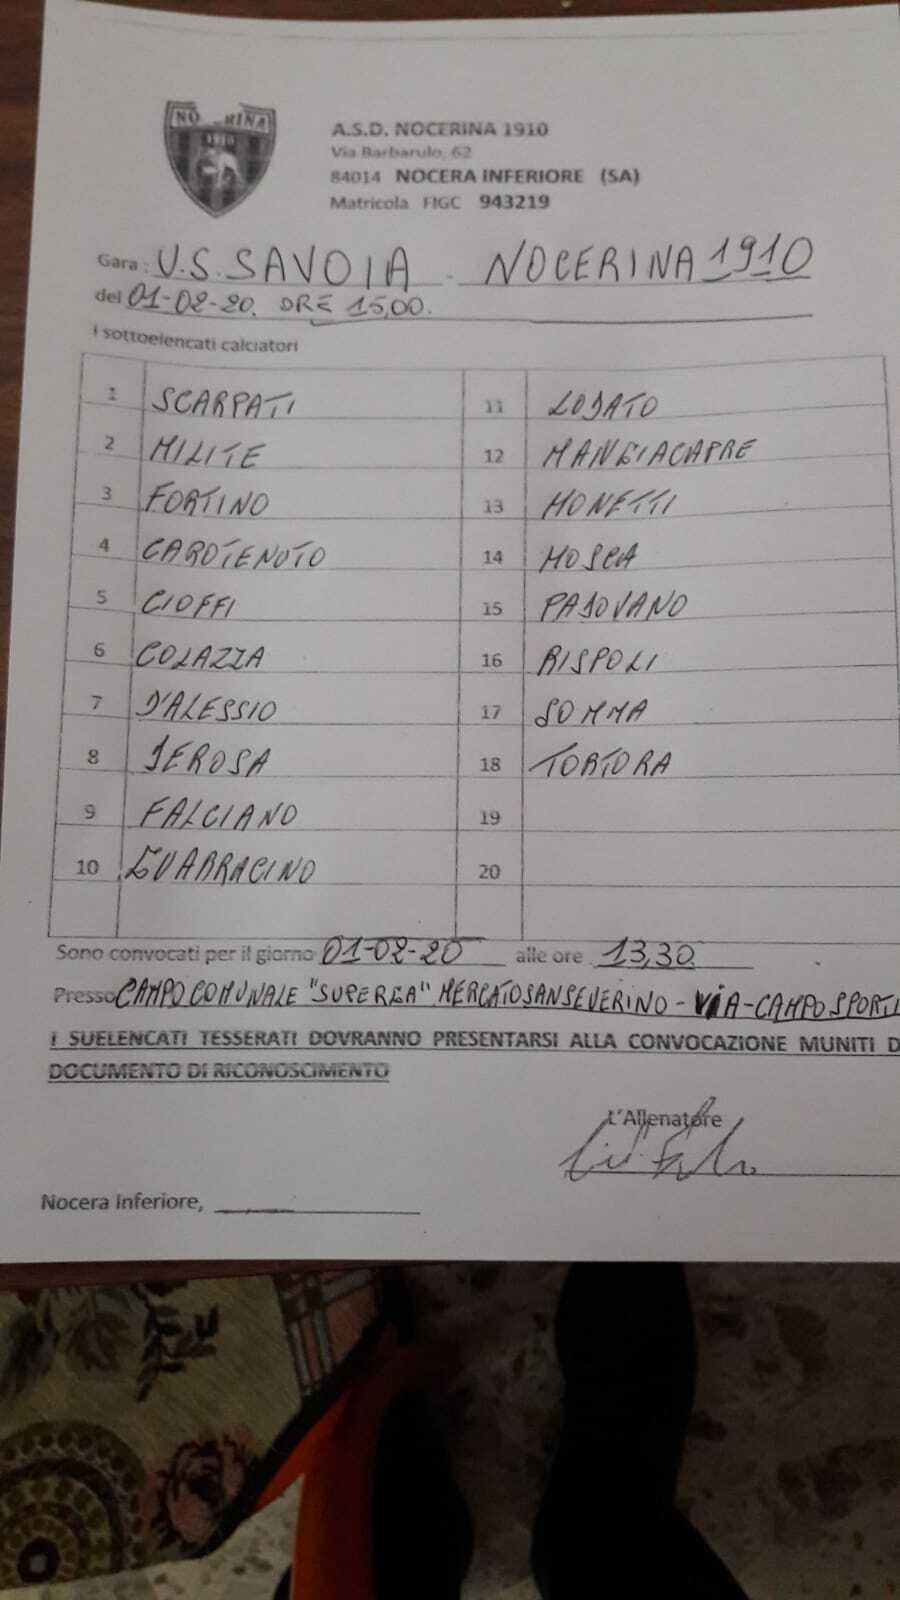 NO RINA
1910
A.S.D. NOCERINA 1910
Via Barbarulo, 62
84014 NOCERA INFERIORE (SA)
Matricola FIGC 943219
Gara : U.S. SAVOIA - NOCERINA 1910
del 01-02-20. ORE 15,00.
I sottoelencati calciatori
1 SCARPATI
2 MILITE
3 FORTINO
4 CAROTENUTO
5 CIOFFI
6 COLAZZA
7 D'ALESSIO
8 DEROSA
9 FALCIANO
10 GUARRACINO
11 LODATO
12 MANGIACAPRE
13 MONETTI
14 MOSCA
15 PADOVANO
16 RISPOLI
17 SOMMA
18 TORTORA
19
20
Sono convocati per il giorno 01-02-20 alle ore 13,30
Presso CAMPO COMUNALE "SUPERGA" MERCATO SANSEVERINO - VIA - CAMPO SPORTI
I SUELENCATI TESSERATI DOVRANNO PRESENTARSI ALLA CONVOCAZIONE MUNITI D
DOCUMENTO DI RICONOSCIMENTO
L'Allenatore
Nocera Inferiore,